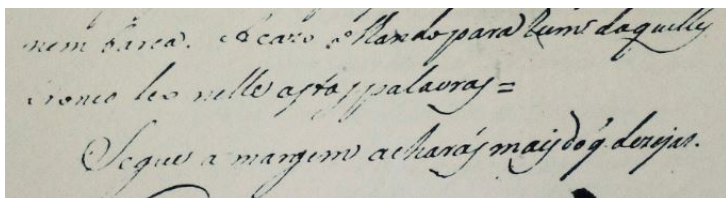 nem barca. Acazo olhando para hum daquelles
troncos leo nelle estas palavras =
Segue a margem acharás mais do q. dezejas.